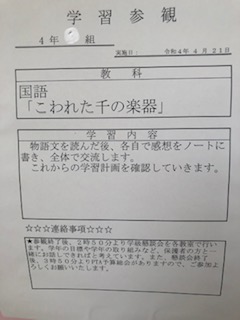 学習参観
4年 組
実施日： 令和4年 4月 21日
教科
国語
「こわれた千の楽器」
学習内容
物語文を読んだ後、各自で感想をノートに
書き、全体で交流します。
これからの学習計画を確認していきます。
☆☆☆連絡事項☆☆☆
★参観終了後、2時50分より学級懇談会を各教室で行い
ます。学年の目標や学年の取り組みなど、保護者の方と一
緒にお話しできればと考えています。また、懇談会終了
後、3時50分よりPTA予算総会がありますので、ご参加よ
ろしくお願いいたします。